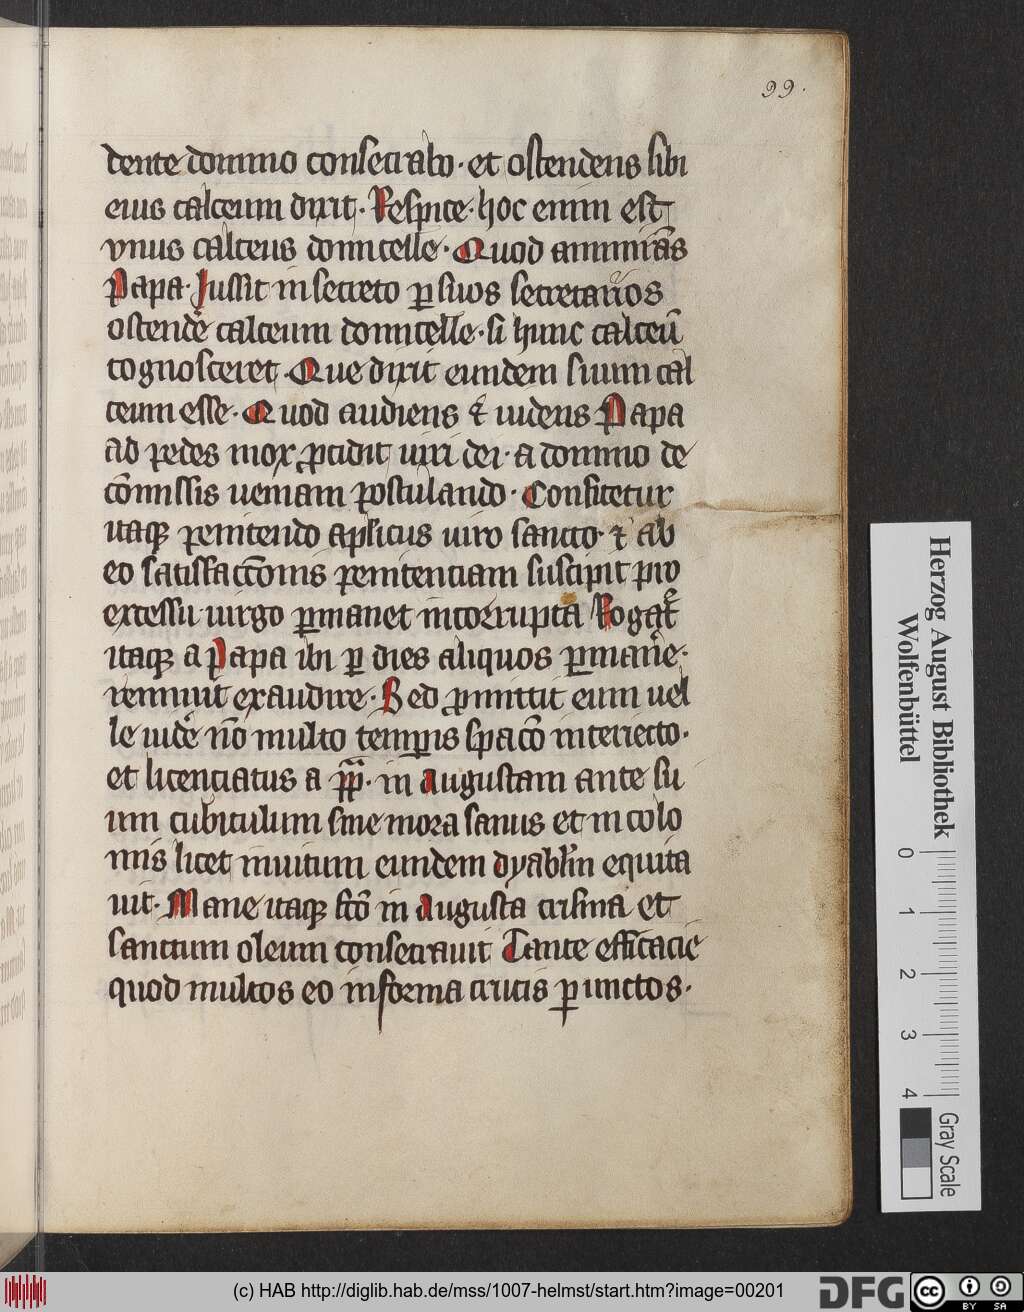 99.
dente domino consecrabo. et ostendens sibi
eius calceum dixit. Respice. hoc enim est
vnus calceus domicelle. Quod ammirãs
Papa. Jussit in secreto ꝑ suos secretarios
ostendẽ calceum domicelle. si hunc calceũ
cognosceret. Que dixit eundem suum cal
ceum esse. Quod audiens & uidens Papa
ad pedes mox ꝓcidit uiri dei. a domino de
cõmissis ueniam postulando. Confitetur
itaqꝫ penitendo aplicus uiro sancto. & ab
eo satisfactõnis penitentiam suscipit pro
excessu. uirgo ꝑmanet incorrupta Rogat᷑
itaqꝫ a Papa ibi ꝑ dies aliquos ꝑmanẽ.
rennuit exaudire. Sed ꝓmittit eum uel
le uidẽ nõ multo temꝑis spacõ interiecto.
et licenciatus a pp̃. in Augustam ante su
um cubiculum sine mora sanus et in colo
mis licet inuitum eundem dyablm̃ equita
uit. Mane itaqꝫ fcõ in Augusta crisma et
sanctum oleum consecrauit Tante efficacie
quod multos eo in forma crucis ꝑunctos.
Herzog August Bibliothek
Wolfenbüttel
0 1 2 3 4
Gray Scale
(c) HAB http://diglib.hab.de/mss/1007-helmst/start.htm?image=00201
DFG
cc BY SA